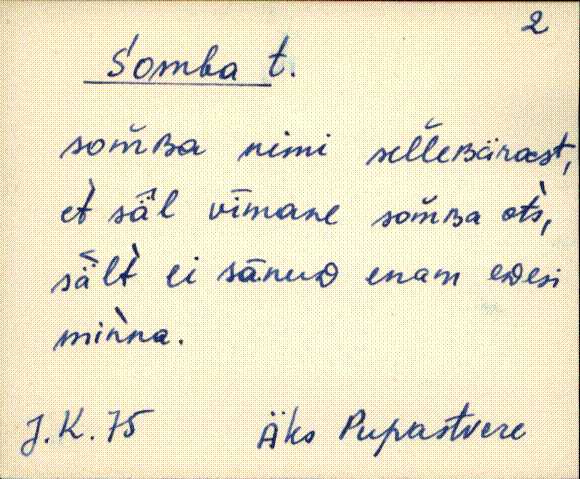 2
Somba t.
som̆ʙa nimi sel̆leʙärast,
et̀ sä̆l vīmane som̆ʙa ots̀,
sä̆lt̀ ei sānuᴅ enam eᴅesi
miǹna.
J.K. 75 Äks Pupastvere